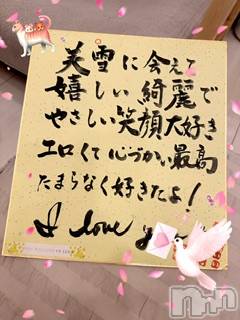 美雪に会えて
嬉しい綺麗で
やさしい笑顔大好き
エロくて心づかい最高
たまらなく好きだよ!
I love